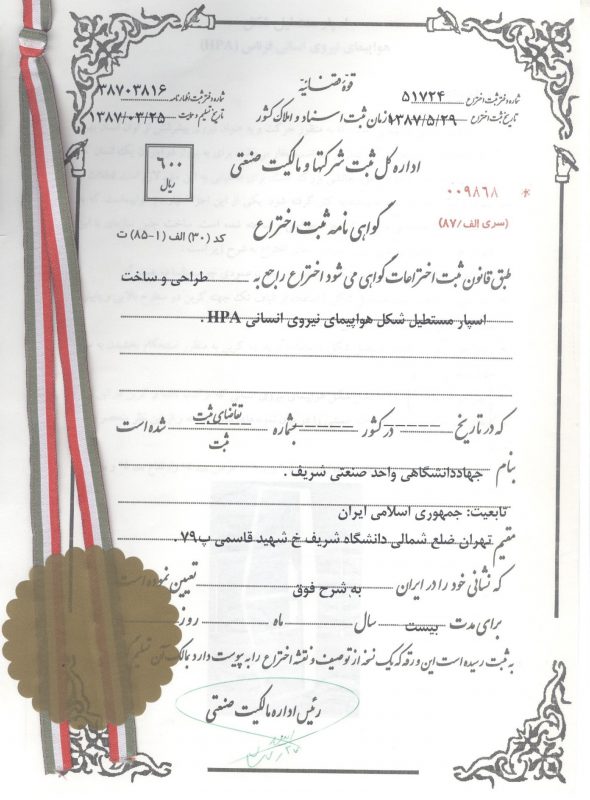 قوهٔ قضائیه
شماره دفتر ثبت اختراع ۵۱۷۲۴
شماره دفتر ثبت اظهارنامه ۳۸۷۰۳۸۱۶
تاریخ ثبت اختراع ۱۳۸۷/۵/۲۹
سازمان ثبت اسناد و املاک کشور
تاریخ تسلیم ۱۳۸۷/۰۳/۲۵
اداره کل ثبت شرکتها و مالکیت صنعتی
۶۰۰
ریال
* ۰۰۹۸۶۸
(سری الف/۸۷)
گواهی نامه ثبت اختراع
کد (۳۰) الف (۱-۸۵) ت
طبق قانون ثبت اختراعات گواهی می شود اختراع راجع به طراحی و ساخت
اسپار مستطیل شکل هواپیمای نیروی انسانی HPA .
که در تاریخ ------ در کشور ------ بشماره ------ تقاضای ثبت
ثبت شده است
بنام جهاددانشگاهی واحد صنعتی شریف .
تابعیت: جمهوری اسلامی ایران
مقیم تهران ضلع شمالی دانشگاه شریف خ شهید قاسمی پ۷۹ .
که نشانی خود را در ایران به شرح فوق تعیین نموده است
برای مدت بیست سال ماه روز
به ثبت رسیده است این ورقه که یک نسخه از توصیف و نقشه اختراع را به پیوست دارد بمالک آن تسلیم
رئیس اداره مالکیت صنعتی